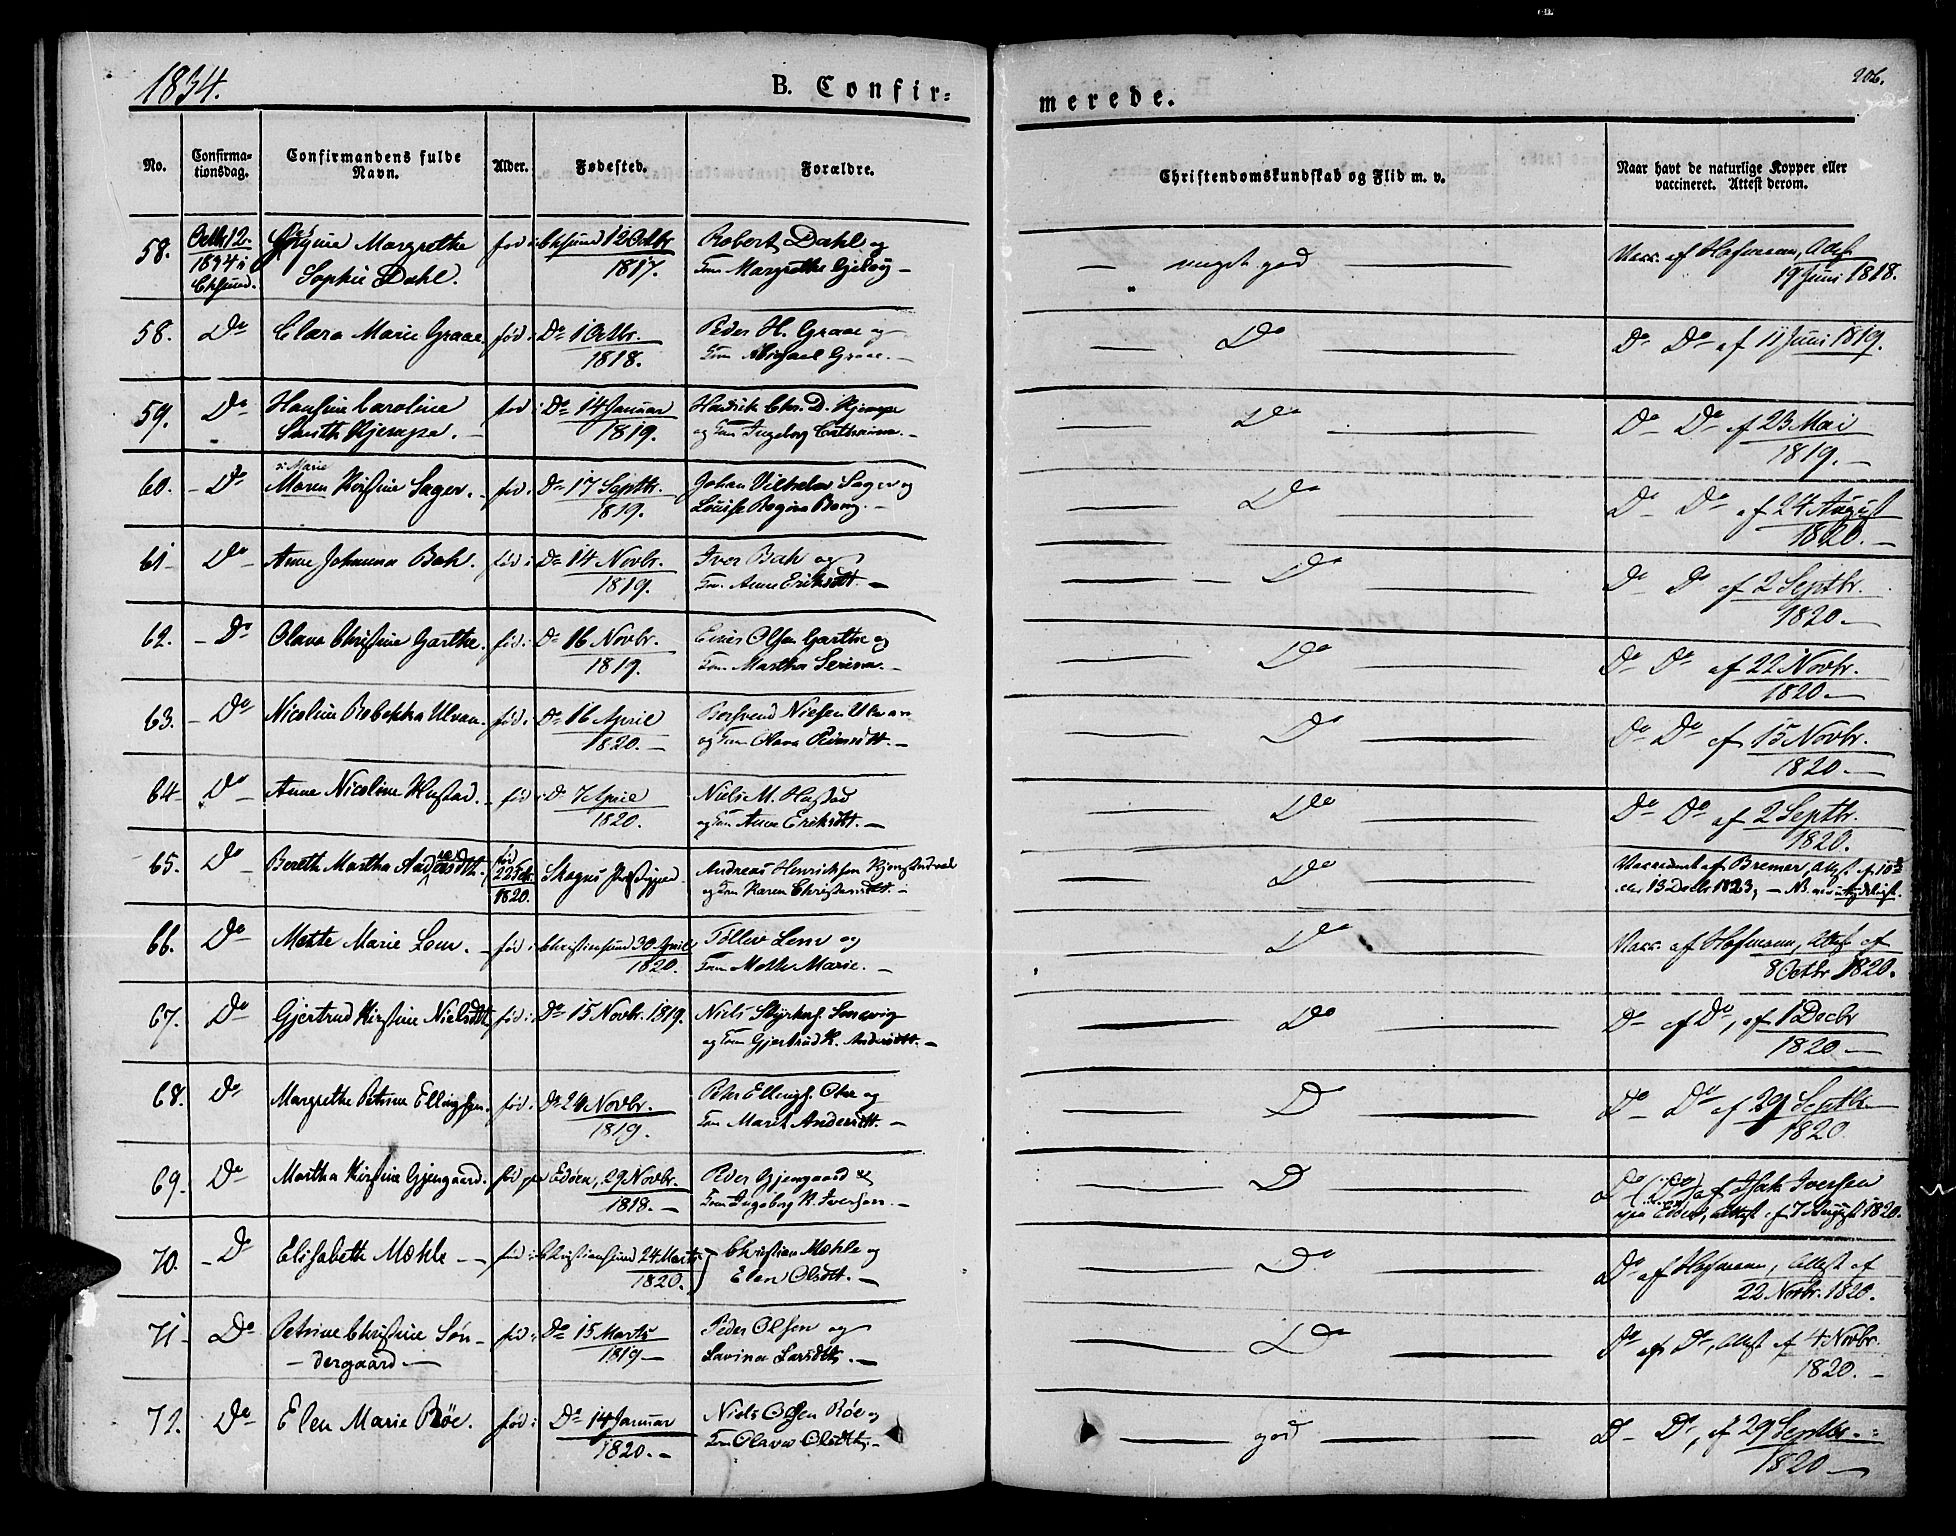 1834.
B. Confir-
merede.
206.
No.
Confirma-
tionsdag.
Confirmandens fulde
Navn.
Alder.
Fødested.
Forældre.
Christendomskundskab og Flid m. v.
Naar havt de naturlige Kopper eller
vaccineret. Attest derom.
58. Octbr 12. Margrethe fød i Chsund 12 Octbr Robert Dahl og
1834 i Sophie Dahl. 1817. Margrethe
Chsund.
— meget god — Vacc. af Hofmann, Attest
19 Juni 1818.
58. Do Clara Marie Graae fød i Do 1 Octbr. Peder H. Graae og
1818. Abigael Graae. —
— Do — Do Do af 11 Juni 1819.
59. Do Hansine Caroline fød i Do 14 Januar Hendrik Chr. D. Kjempe
Smith Kjempe. — 1819. og Ingeborg Cathrina. —
— Do — Do Do af 23 Mai
1819. —
60. — Do Maren Kirstine Sager. — fød i Do 17 Septbr. Johan Vilhelm Sager og
ɔ: Marie
1819. Louise Regina Bang. —
— Do — Do Do af 24 August
1820. —
61 — Do — Anne Johanna Bak. fød i Do 14 Novbr. Iver Bak og
1819. Anne Eriksdtt. —
— Do — Do Do af 2 Septbr.
1820. —
62. — Do Olava Christine Garthe. fød i Do 16 Novbr. Olsen Garthe og
1819. Martha Serina. —
— Do — Do Do af 22 Novbr.
1820. —
63. — Do Nicoline Rebekka Ulvan. fød i Do 16 April Nielsen Ulvan
1820. — og Olava Pedersdtt. —
— Do — Do Do af 15 Novbr.
1820. —
64 — Do — Anne Nicoline Hustad. — fød i Do 7 April Niels M. Hustad
1820. og Anne Eriksdtt. —
— Do — Do Do af 2 Septbr.
1820.
65. Do Bereth Martha Andreasdtt. fød Andreas Henrichsen
1820. og Karen Christensdtt. —
— Do — Vaccineret af Bremer, Attest af
13 Decbr 1823, —
66. Do — Mette Marie Lem. — fød i Christiansund 30 April Tollev Lem og
1820. Mette Marie. —
— Do — Vacc. af Hofmann, Attest af
8 Octbr 1820.
67. Do Gjertrud Kirstine Nielsdtt. fød i Do 15 Novbr. 1819. Niels
og Gjertrud K. Andersdtt. —
— Do — Do af Do, af 1 Decbr
1820 —
68. Do Margrethe Petrine Ellingsen. fød i Do 29 Novbr. Peter Ellings. og
1819. Marit Andersdtt. —
— Do — Do Do af 29 Septbr.
1820.
69. Do Martha Kirstine Gjengaard. fød paa Edøen, 29 Novbr. Peder Gjengaard &
1818. — Ingeborg K. Iversen. —
— Do — Do (Do) af Isak Iversen
paa Edøen, Attest af 7 August 1820.
70. — Do Elisabeth Møhle — fød i Christiansund 24 Marts Christian Møhle og
1820. Elen Olsdtt. —
— Do — Do af Hofmann, Attest af
22 Novbr. 1820.
71 — Do Petrine Christine Søn- fød i Do 15 Marts Peder Olsen og
— dergaard — 1819 — Lavina Larsdtt. —
— Do — Do af Do, Attest af 4 Novbr.
1820. —
72. Do Elen Marie Røe. fød i Do 14 Januar Niels Olsen Røe og
1820. — Olava Olsdtt. —
— god — Do Do, af 29 Septbr.
1820 —